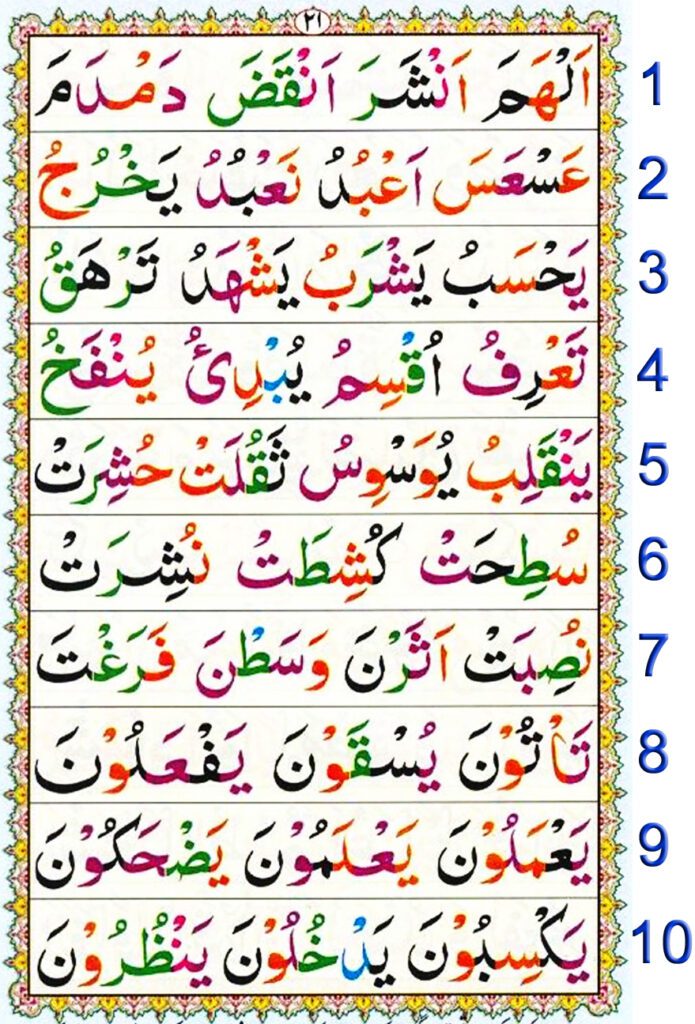 ٢١
اَلْهَمَ اَنْشَرَ اَنْقَضَ دَمْدَمَ 1
عَسْعَسَ اَعْبُدُ نَعْبُدُ يَخْرُجُ 2
يَحْسَبُ يَشْرَبُ يَشْهَدُ تَرْهَقُ 3
تَعْرِفُ اُقْسِمُ يُبْدِئُ يُنْفَخُ 4
يَنْقَلِبُ يُوَسْوِسُ ثَقُلَتْ حُشِرَتْ 5
سُطِحَتْ كُشِطَتْ نُشِرَتْ 6
نُصِبَتْ اَثَرْنَ وَسَطْنَ فَرَغْتَ 7
تَأْتُوْنَ يُسْقَوْنَ يَفْعَلُوْنَ 8
يَعْمَلُوْنَ يَعْلَمُوْنَ يَضْحَكُوْنَ 9
يَكْسِبُوْنَ يَدْخُلُوْنَ يَنْظُرُوْنَ 10